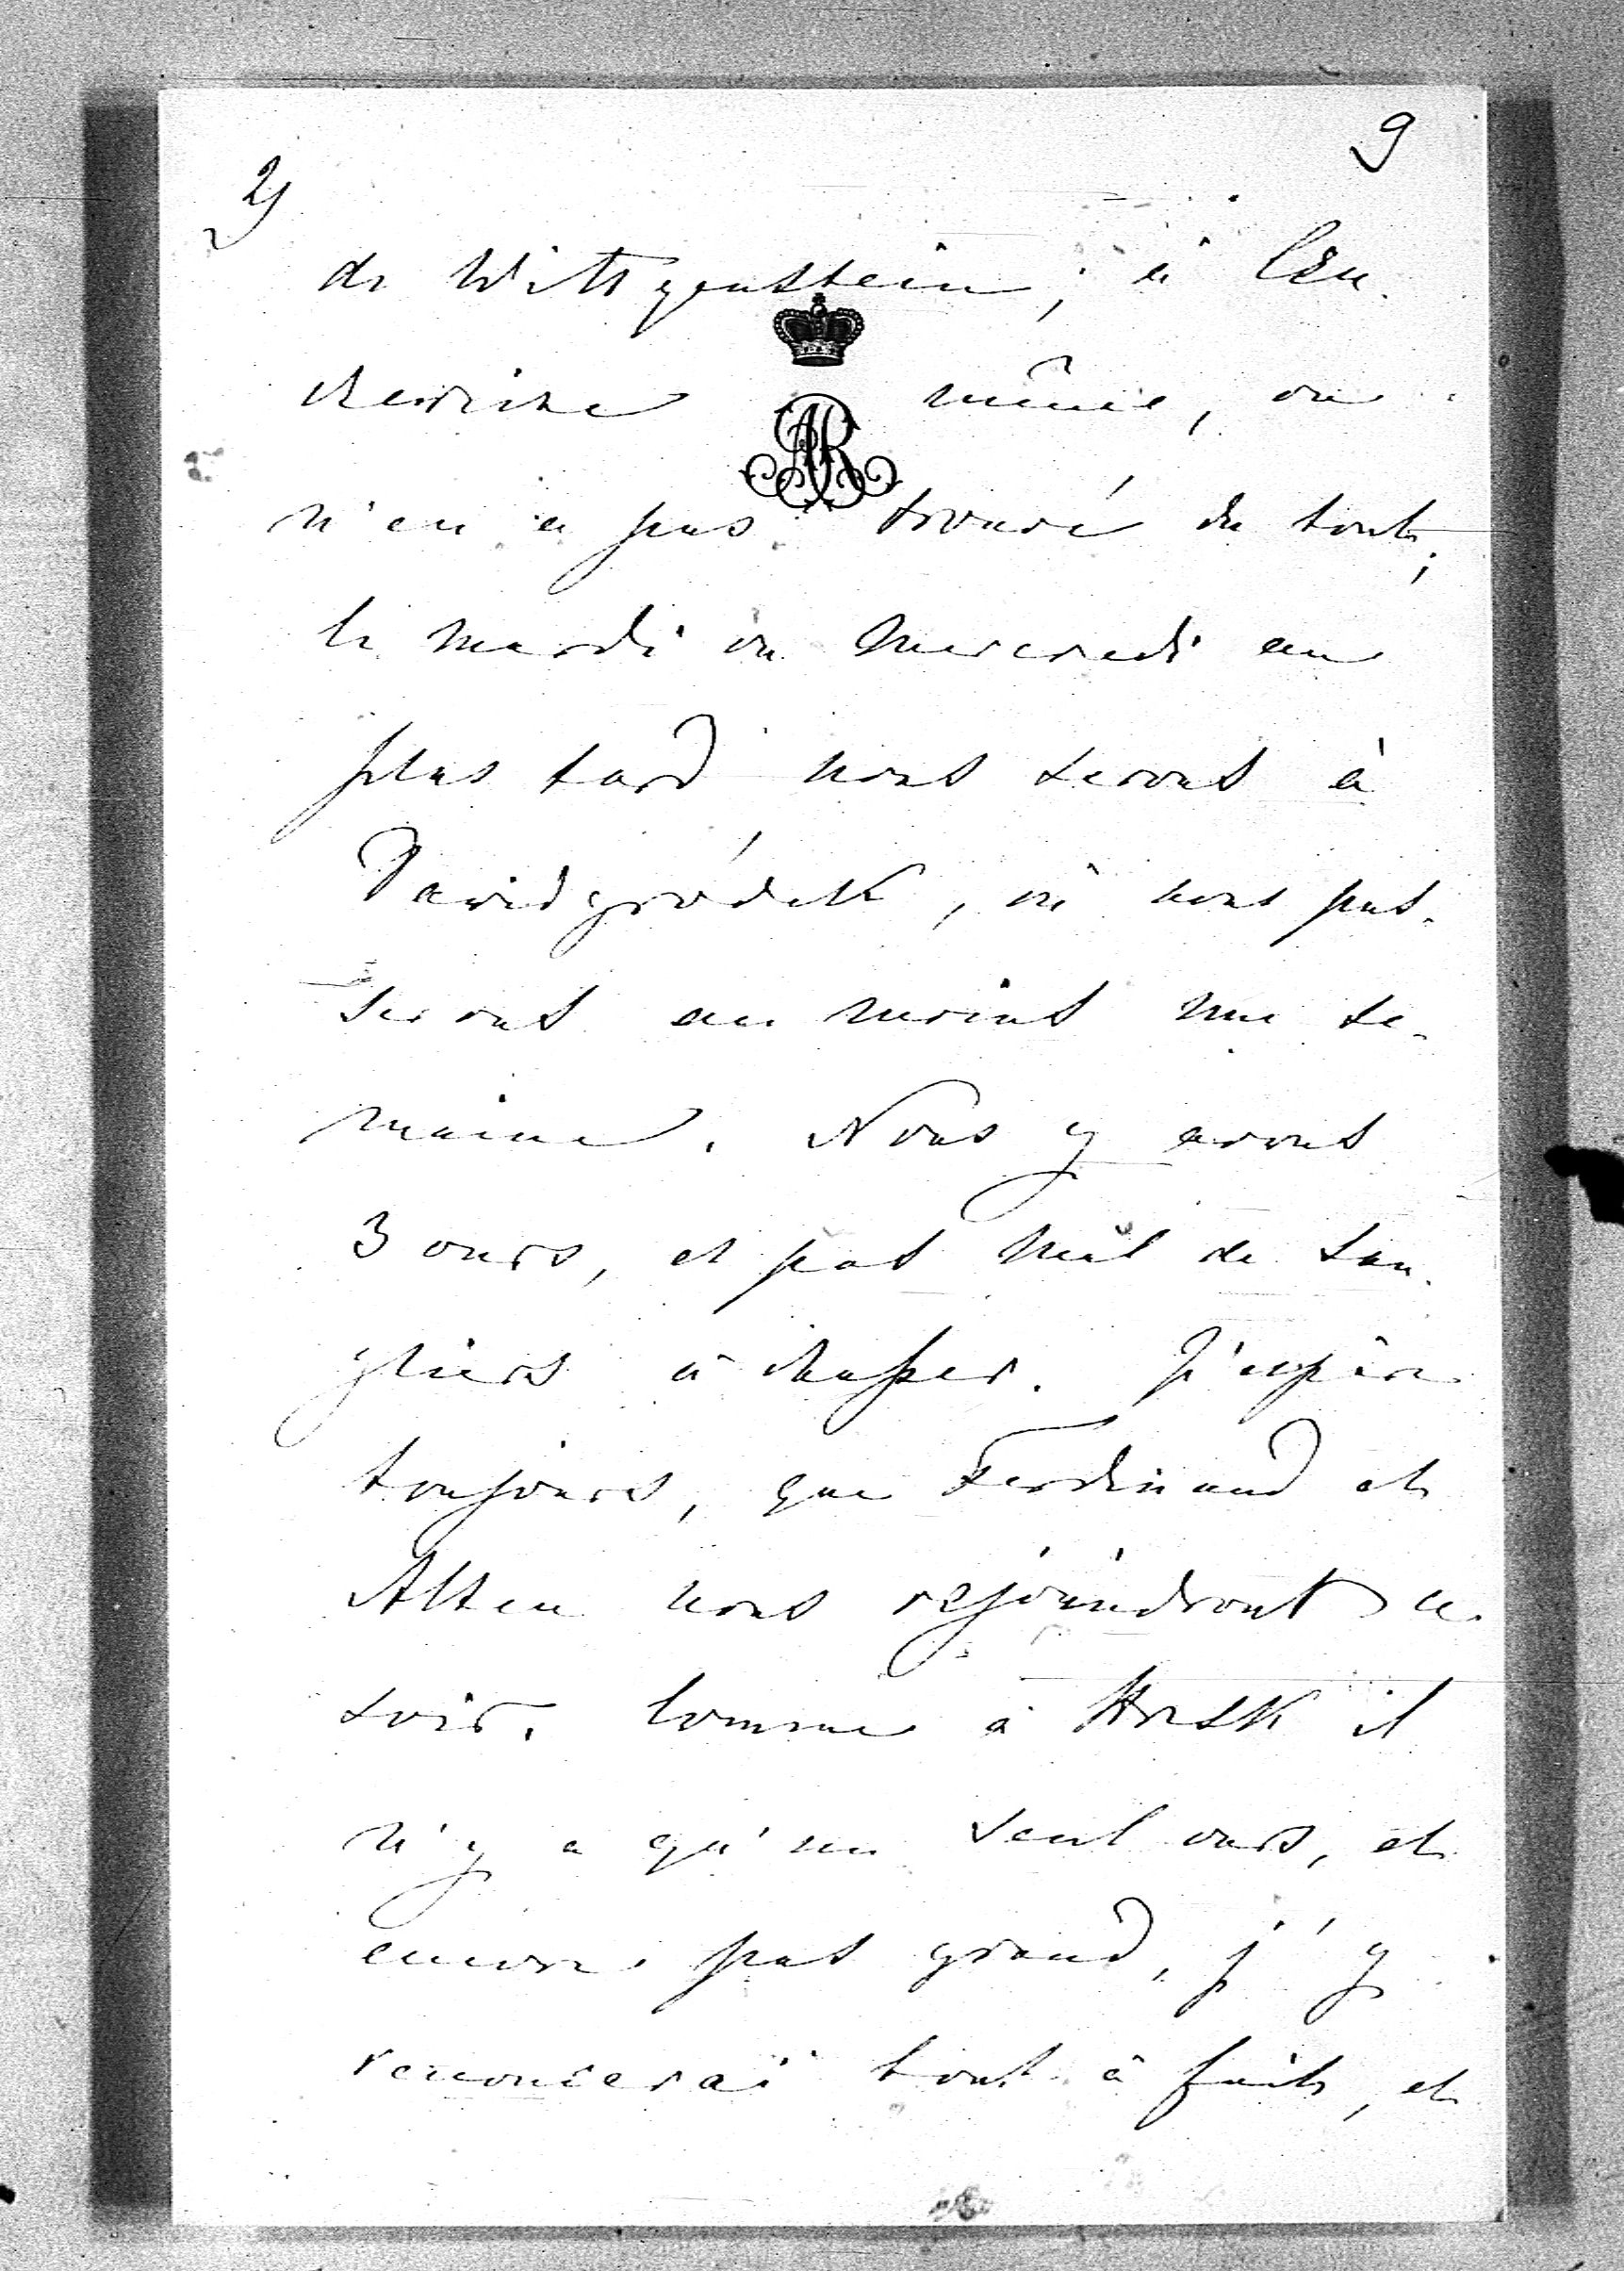 2) 9
de Wittgenstein; à Len-
même, on
n'en a pas trouvé du tout;
le mardi ou Mercredi au
plus tard nous serons à
Davidgródek, où nous pas-
serons au moins une se-
maine. Nous y avons
3 ours, et pas mal de san-
gliers à chasser. J'espère
toujours, que Ferdinand et
Alten nous rejoindront ce
soir. Comme à Hrsk il
n'y a qu'un seul ours, et
encore pas grand, j'y
renoncerai tout à fait, et